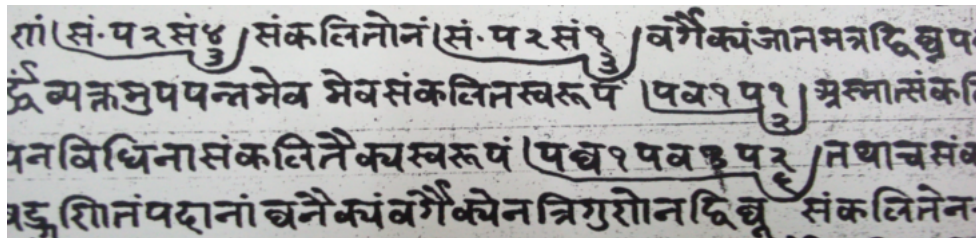 शां। सं॰ प २ सं ४ ३ संकलितोनं। सं॰ प २ सं १ ३ वर्गैक्यं जातमत्र द्विघ्नप
र्द्धं व्यक्तमुपपन्नमेव मेव संकलितस्वरूपं । प व १ प १ २ अस्मात्संकलि
पन विधिना संकलितैक्यस्वरूपं । प घ १ प व ३ प २ ६ तथाच सं
षड्गुणितं पदानां घनैक्यं वर्गैक्येन त्रिगुणेन द्विघ्न संकलितेन